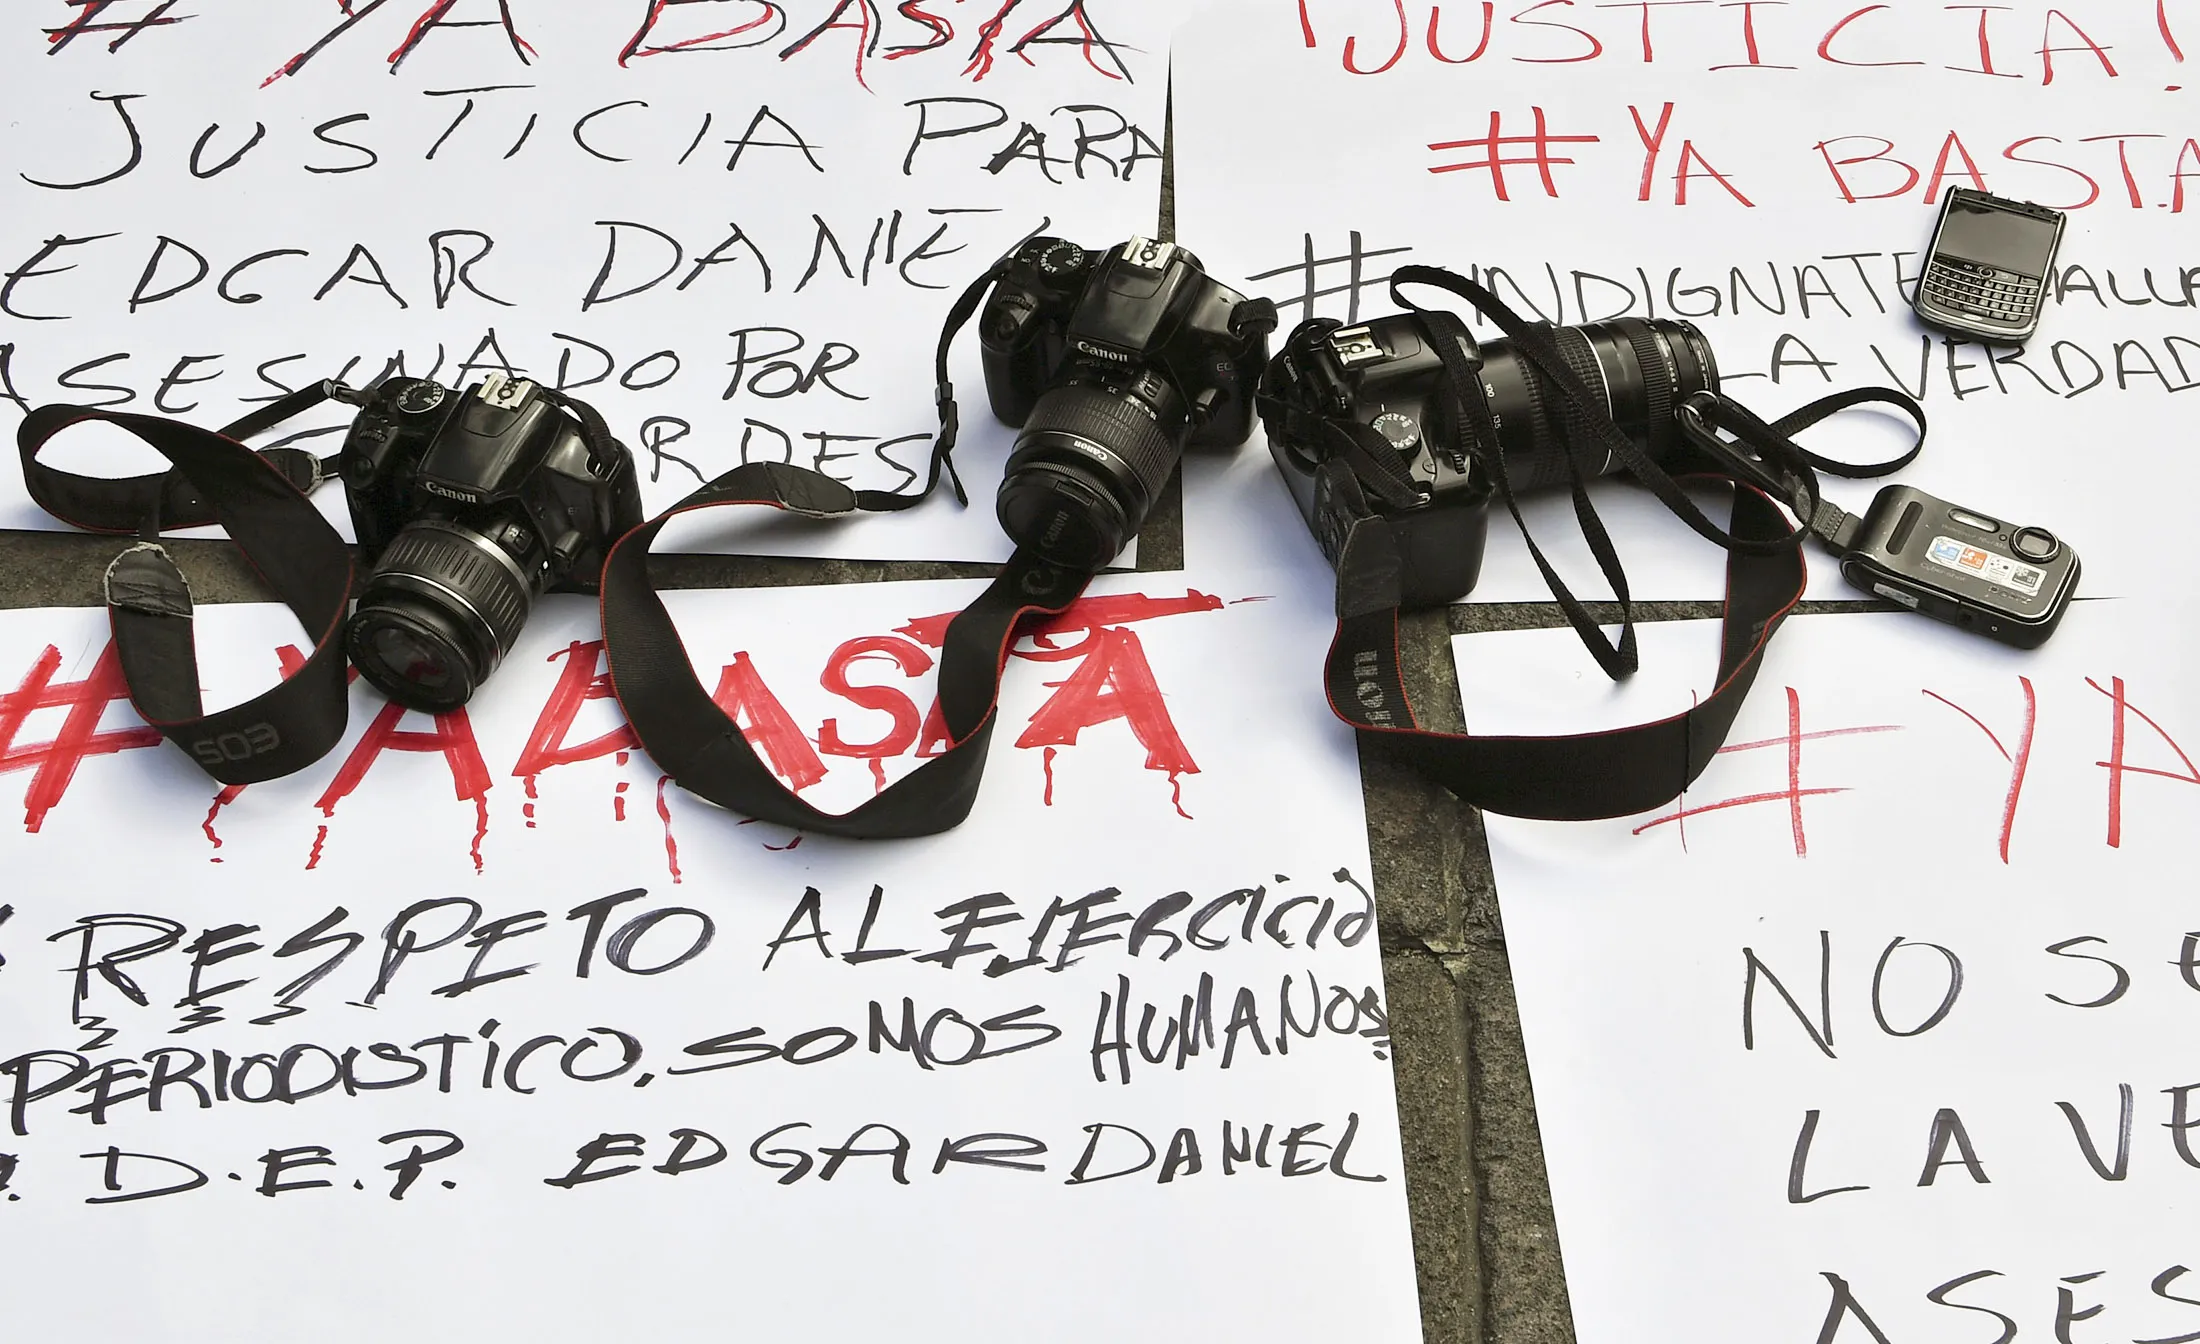 # YA BASTA
JUSTICIA PARA
EDGAR DANIEL
ASESINADO POR
¡JUSTICIA!
#YA BASTA
#INDIGNATE
LA VERDAD
Canon
Canon
Canon
EOS
Canon
Cyber-shot
#YA BASTA
RESPETO AL EJERCICIO
PERIODISTICO. SOMOS HUMANOS
D.E.P. EDGAR DANIEL
#YA
NO SE
LA VE
ASES